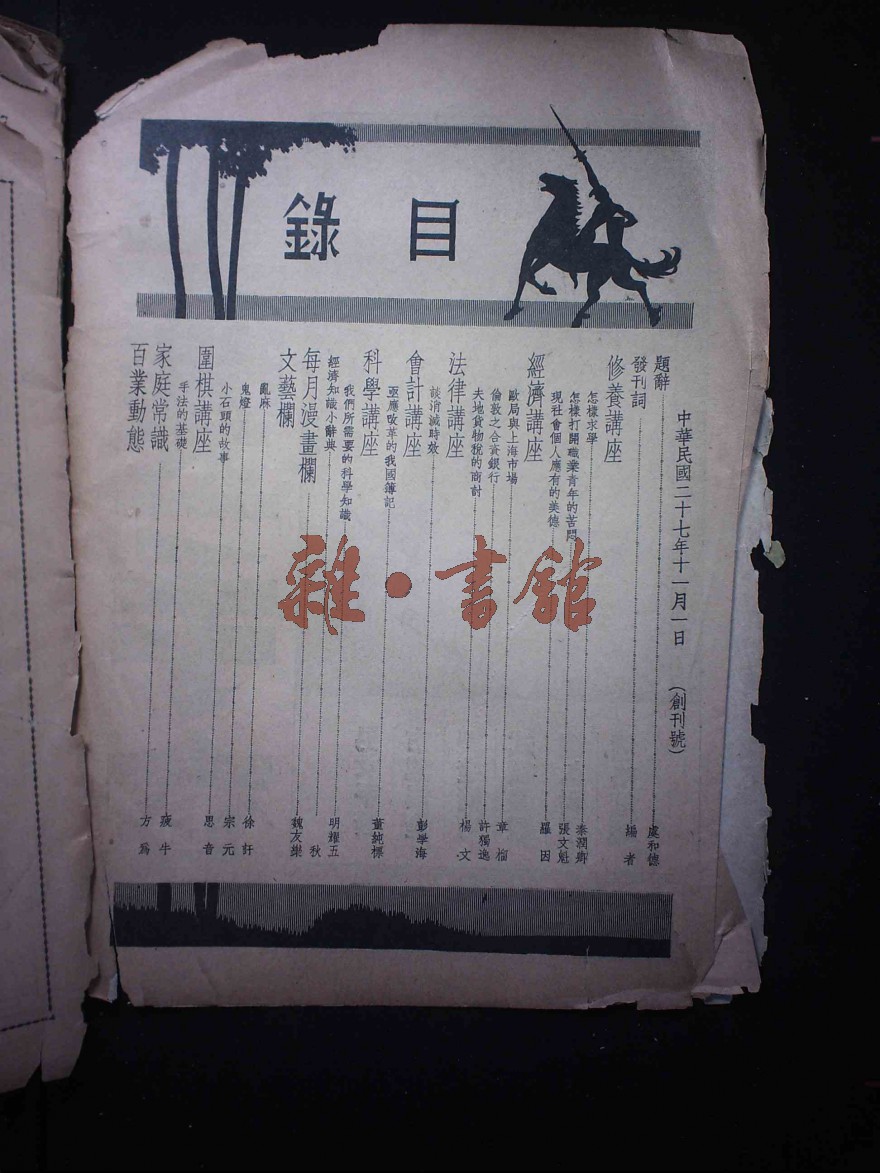 目錄
中華民國二十七年十一月一日 (創刊號)
題辭 虞和德
發刊詞 編者
修養講座
怎樣求學 秦潤卿
怎樣打開職業青年的苦悶 張文魁
現社會個人應有的美德 羅因
經濟講座
歐局與上海市場 章榴
倫敦之合資銀行 許獨逸
夫地貨物稅的商討 楊文
法律講座
談消滅時效 彭學海
會計講座
亟應改革的我國簿記 董純標
科學講座
我們所需要的科學知識 明耀五
經濟知識小辭典 秋
每月漫畫欄 魏友棐
文藝欄
亂麻 徐訏
鬼燈 宗元
小石頭的故事 思音
圍棋講座
手法的基礎 疲牛
家庭常識 方為
百業動態
雜·書館